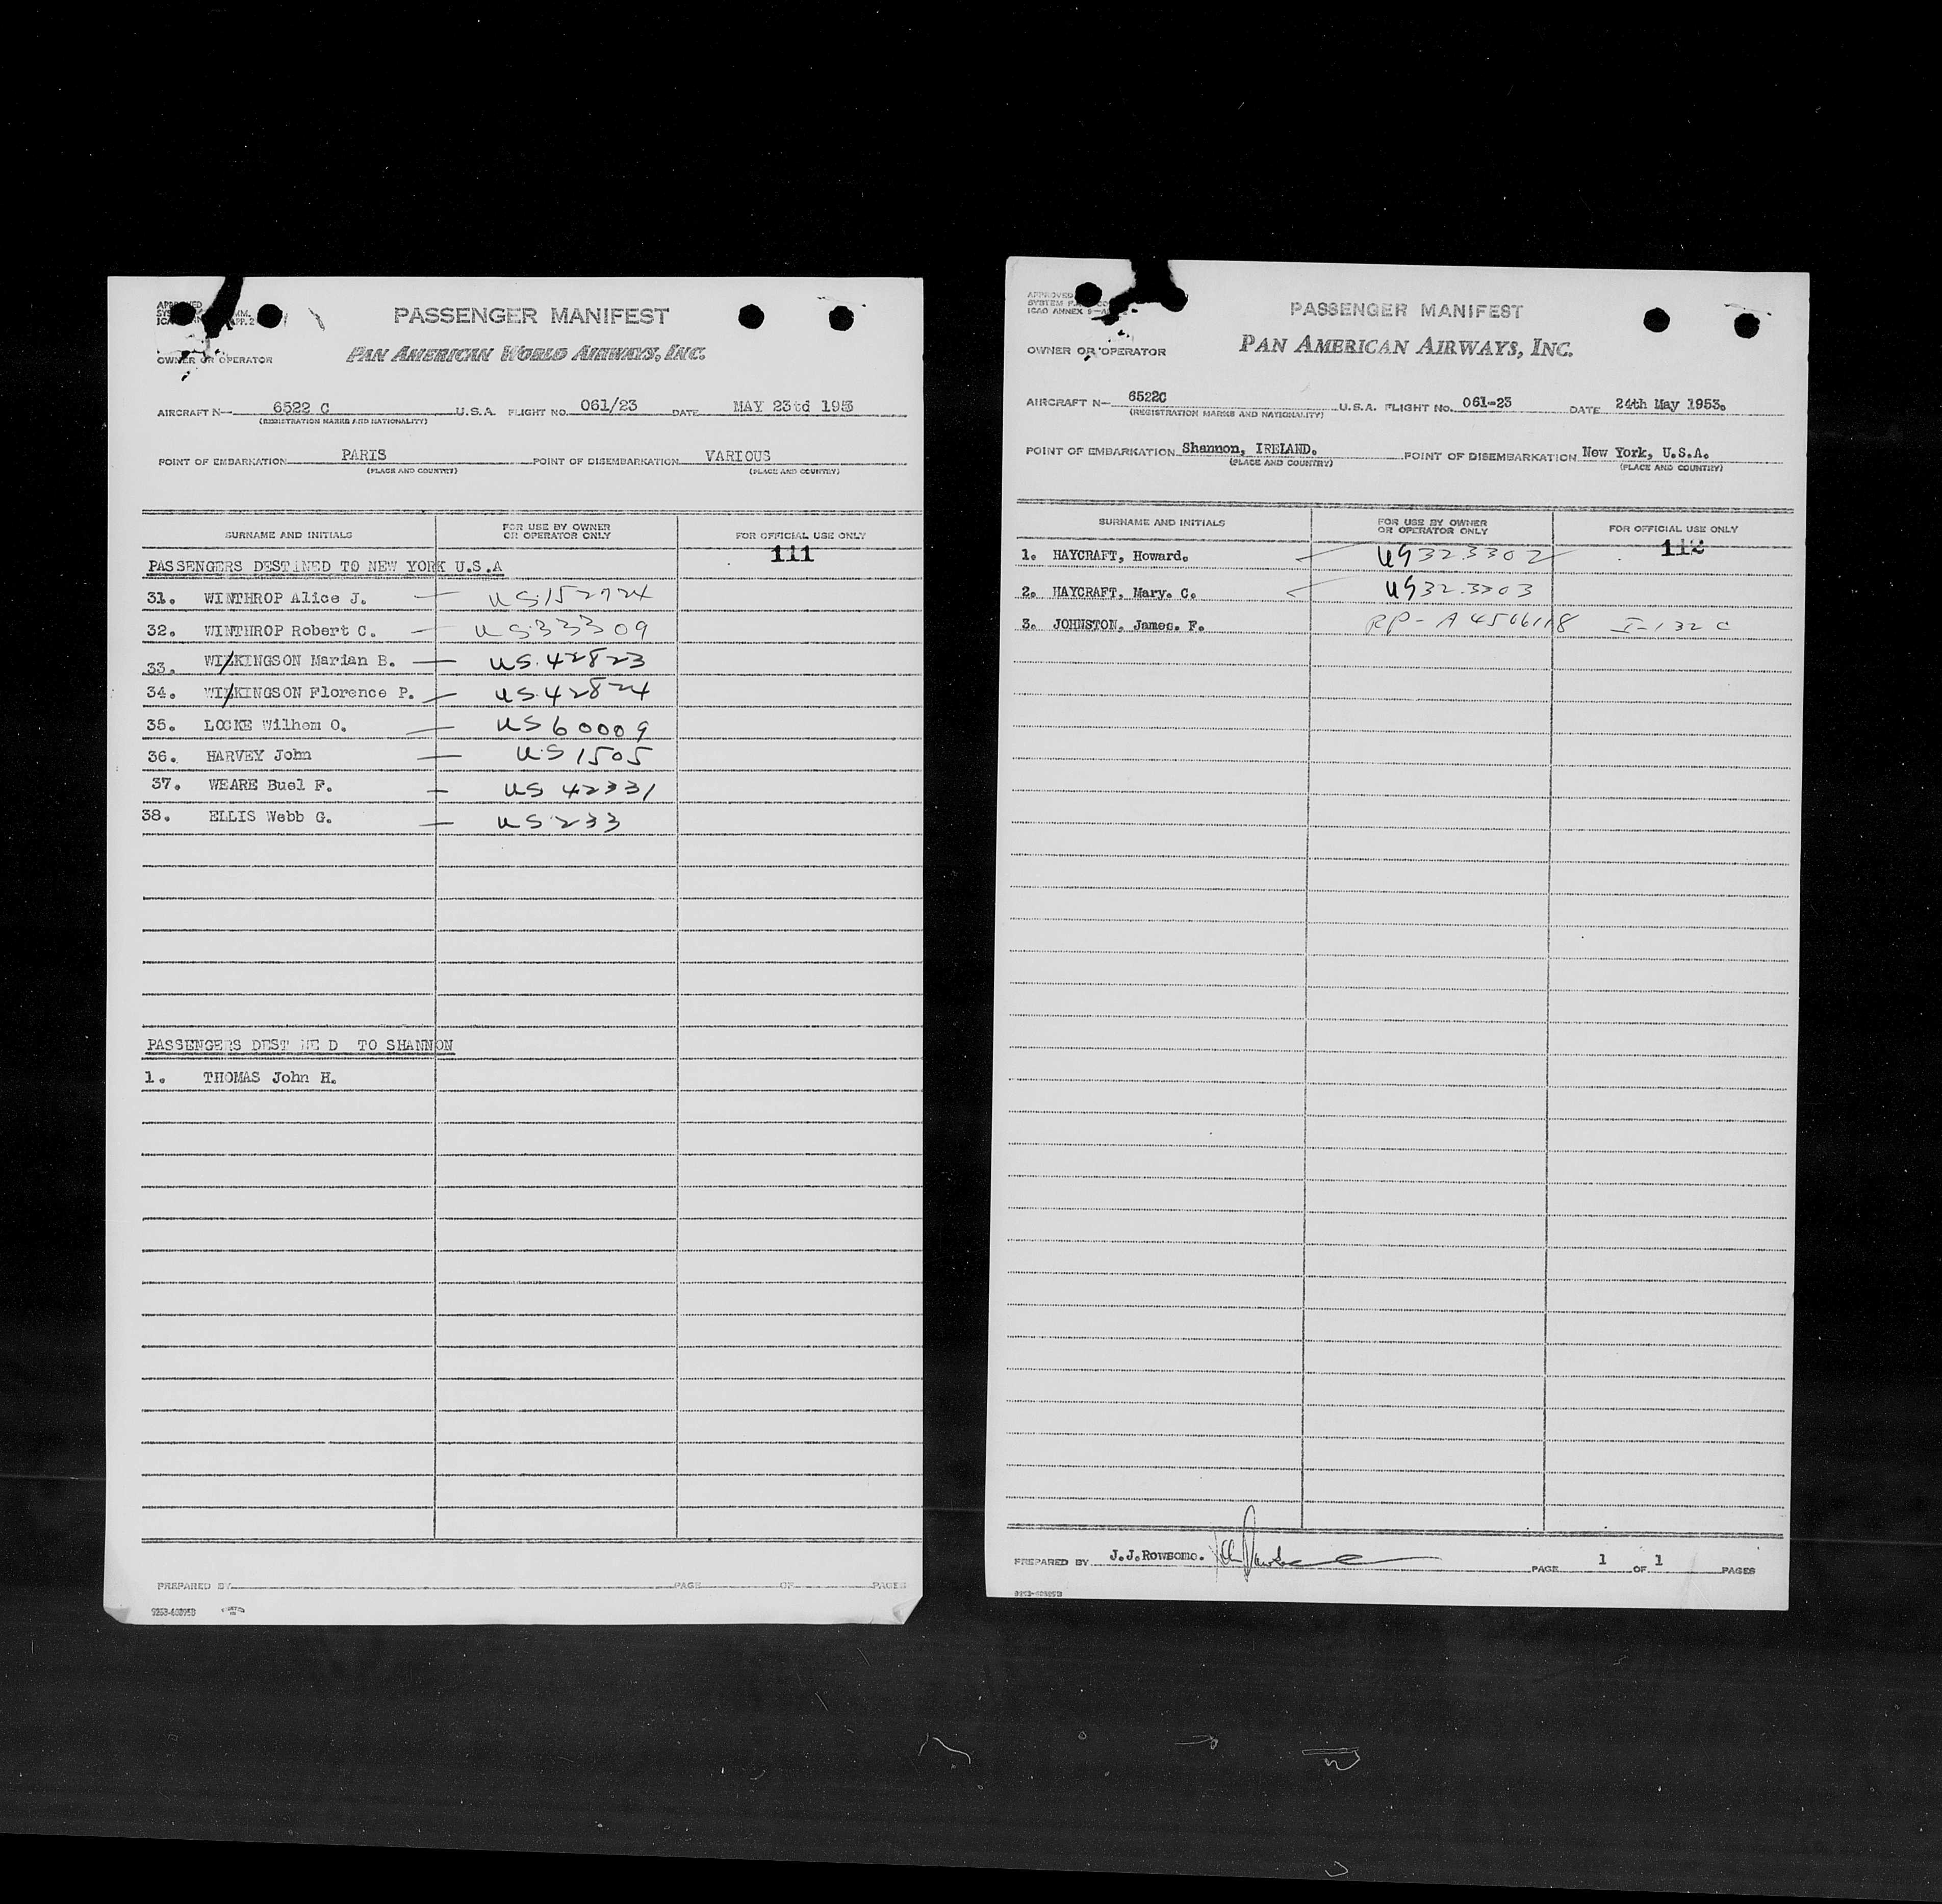 PASSENGER MANIFEST
PAN AMERICAN WORLD AIRWAYS, INC.
OWNER OR OPERATOR
AIRCRAFT N— 6522 C U.S.A. FLIGHT NO. 061/23 DATE MAY 23td 1953
(REGISTRATION MARKS AND NATIONALITY)
POINT OF EMBARKATION PARIS POINT OF DISEMBARKATION VARIOUS
(PLACE AND COUNTRY) (PLACE AND COUNTRY)
SURNAME AND INITIALS FOR USE BY OWNER OR OPERATOR ONLY FOR OFFICIAL USE ONLY
111
PASSENGERS DESTINED TO NEW YORK U.S.A
31. WINTHROP Alice J. — US.152724
32. WINTHROP Robert C. — US.33309
33. WILKINGSON Marian B. — US.42823
34. WILKINGSON Florence P. — US.42824
35. LOCKE Wilhem O. — US60009
36. HARVEY John — US1505
37. WEARE Buel F. — US 42331
38. ELLIS Webb G. — US.233
PASSENGERS DEST NE D TO SHANNON
1. THOMAS John H.
PREPARED BY PAGE OF PAGES
APPROVED
SYSTEM
ICAO ANNEX 9—A
PASSENGER MANIFEST
OWNER OR OPERATOR PAN AMERICAN AIRWAYS, INC.
AIRCRAFT N— 6522C U.S.A. FLIGHT NO. 061-23 DATE 24th May 1953.
(REGISTRATION MARKS AND NATIONALITY)
POINT OF EMBARKATION Shannon, IRELAND. POINT OF DISEMBARKATION New York, U.S.A.
(PLACE AND COUNTRY) (PLACE AND COUNTRY)
SURNAME AND INITIALS FOR USE BY OWNER OR OPERATOR ONLY FOR OFFICIAL USE ONLY
112
1. HAYCRAFT, Howard. US323302
2. HAYCRAFT, Mary. C. US323303
3. JOHNSTON, James. F. RP-A4506118 I-132C
PREPARED BY J.J.Rowsome. PAGE 1 OF 1 PAGES